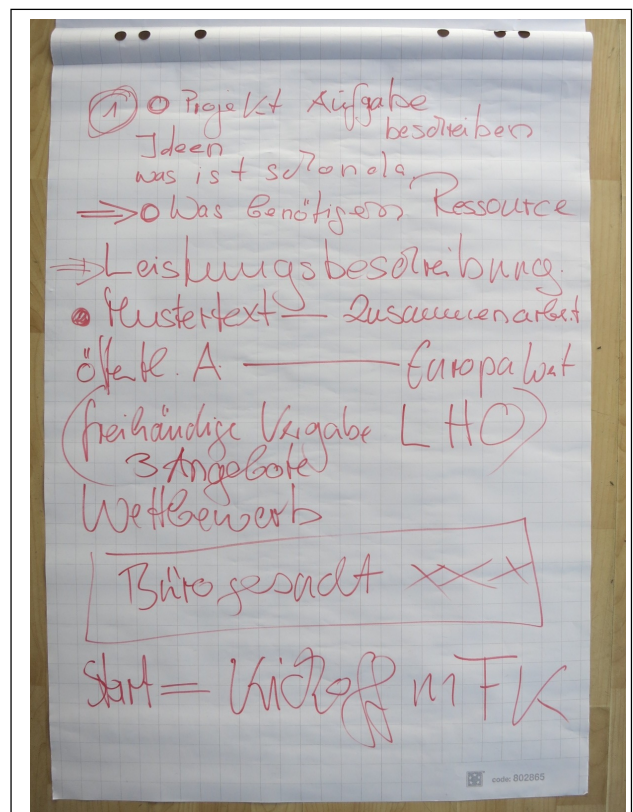 ① o Projekt Aufgabe
beschreiben
Ideen
was ist schon da
⇒ o Was benötigen Ressource
⇒ Leistungsbeschreibung.
• Mustertext — Zusammenarbeit
öffentl. A. — Europaweit
(freihändige Vergabe LHO)
3 Angebote
Wettbewerb
Büro gesucht xxx
Start = Kickoff m FK
code: 802865